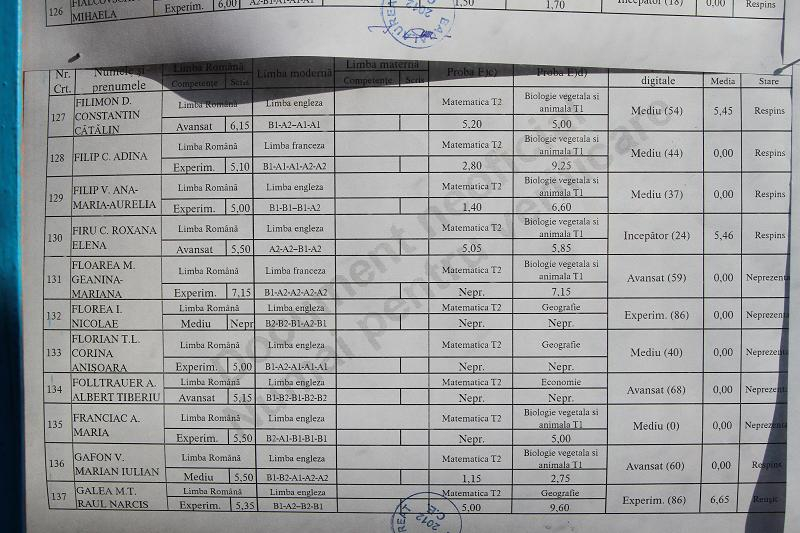 126 MIHAELA Experim. 6,00 A2-B1-A1-A1 1,50 1,70 Incepător (18) 0,00 Respins
BACALAUREAT 2012
Nr. Crt. Numele și prenumele Limba Română Competențe Scris Limba modernă Limba maternă Competențe Scris Proba E)c) Proba E)d) digitale Media Stare
127 FILIMON D. CONSTANTIN CĂTĂLIN Limba Română Limba engleza Matematica T2 Biologie vegetala si animala T1 Mediu (54) 5,45 Respins
Avansat 6,15 B1-A2-A1-A1 5,20 5,00
128 FILIP C. ADINA Limba Română Limba franceza Matematica T2 Biologie vegetala si animala T1 Mediu (44) 0,00 Respins
Experim. 5,10 B1-A1-A1-A2-A2 2,80 9,25
129 FILIP V. ANA-MARIA-AURELIA Limba Română Limba engleza Matematica T2 Biologie vegetala si animala T1 Mediu (37) 0,00 Respins
Experim. 5,00 B1-B1-B1-A2 1,40 6,60
130 FIRU C. ROXANA ELENA Limba Română Limba engleza Matematica T2 Biologie vegetala si animala T1 Incepător (24) 5,46 Respins
Avansat 5,50 A2-A2-B1-A2 5,05 5,85
131 FLOAREA M. GEANINA-MARIANA Limba Română Limba franceza Matematica T2 Biologie vegetala si animala T1 Avansat (59) 0,00 Neprezenta
Experim. 7,15 B1-A2-A2-A2-A2 Nepr. 7,15
132 FLOREA I. NICOLAE Limba Română Limba engleza Matematica T2 Geografie Experim. (86) 0,00 Neprezenta
Mediu Nepr B2-B2-B1-A2-B1 Nepr. Nepr.
133 FLORIAN T.L. CORINA ANIȘOARA Limba Română Limba engleza Matematica T2 Geografie Mediu (40) 0,00 Neprezenta
Experim. 5,00 B1-A2-A1-A1-A1 Nepr. Nepr.
134 FOLLTRAUER A. ALBERT TIBERIU Limba Română Limba engleza Matematica T2 Economie Avansat (68) 0,00 Neprezent
Avansat 5,15 B1-B2-B1-B2-B2 Nepr. Nepr.
135 FRANCIAC A. MARIA Limba Română Limba engleza Matematica T2 Biologie vegetala si animala T1 Mediu (0) 0,00 Neprezenta
Experim. 5,50 B2-A1-B1-B1-B1 Nepr. 5,00
136 GAFON V. MARIAN IULIAN Limba Română Limba engleza Matematica T2 Biologie vegetala si animala T1 Avansat (60) 0,00 Respins
Mediu 5,50 B1-B2-A1-A2-A2 1,15 2,75
137 GALEA M.T. RAUL NARCIS Limba Română Limba engleza Matematica T2 Geografie Experim. (86) 6,65 Reușit
Experim. 5,35 B1-A2-B2-B1 5,00 9,60
Document neoficial
Numai pentru verificare
2012 C.E.